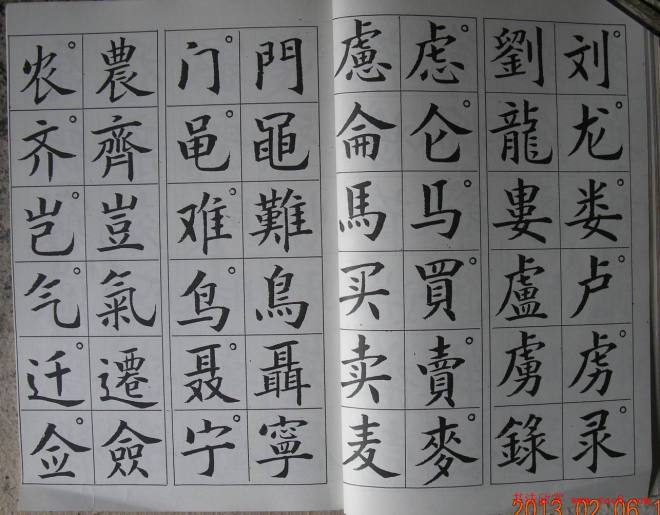 农 農 门 門 慮 虑 劉 刘
齐 齊 黾 黽 侖 仑 龍 龙
岂 豈 难 難 馬 马 婁 娄
气 氣 鸟 鳥 买 買 盧 卢
迁 遷 聂 聶 卖 賣 虜 虏
佥 僉 宁 寧 麦 麥 錄 录
2013.02.06